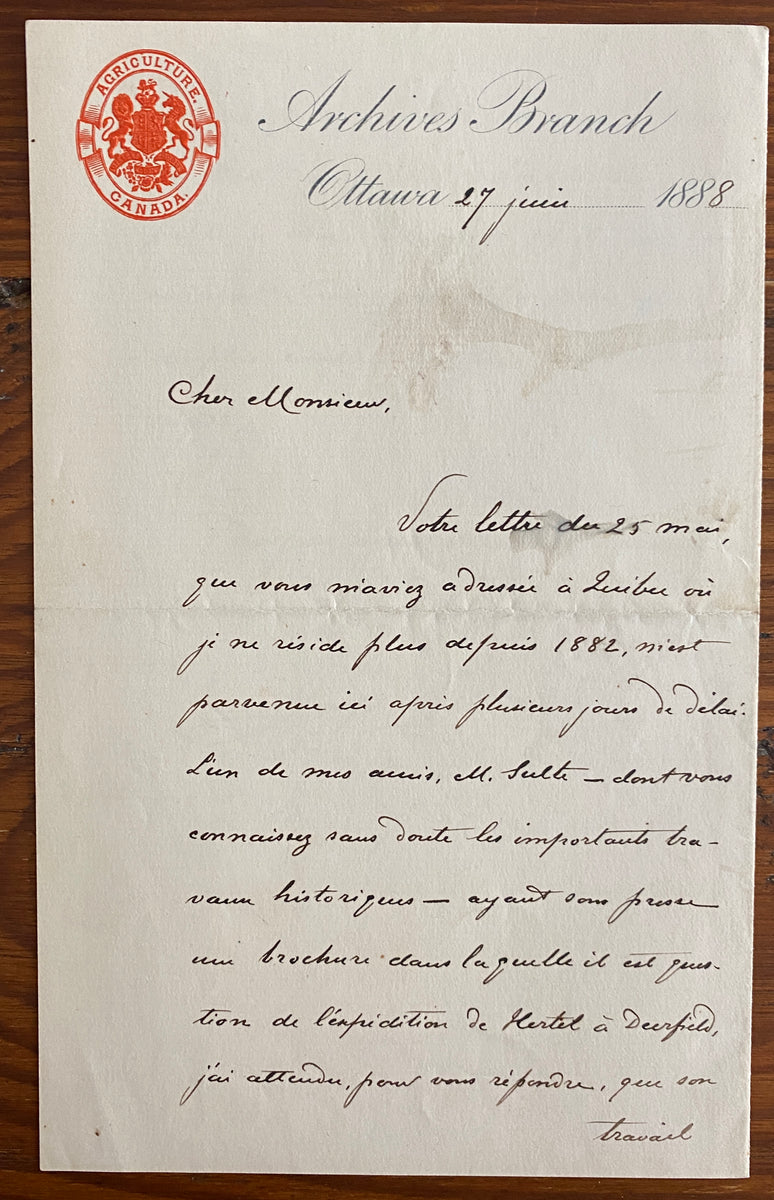 AGRICULTURE.
CANADA.
Archives Branch
Ottawa 27 juin 1888
Cher Monsieur,
Votre lettre du 25 mai,
que vous m'aviez adressée à Québec où
je ne réside plus depuis 1882, m'est
parvenue ici après plusieurs jours de délai.
L'un de mes amis, M. Sulte — dont vous
connaissez sans doute les importants tra-
vaux historiques — ayant sous presse
une brochure dans laquelle il est ques-
tion de l'expédition de Hertel à Deerfield,
j'ai attendu, pour vous répondre, que son
travail